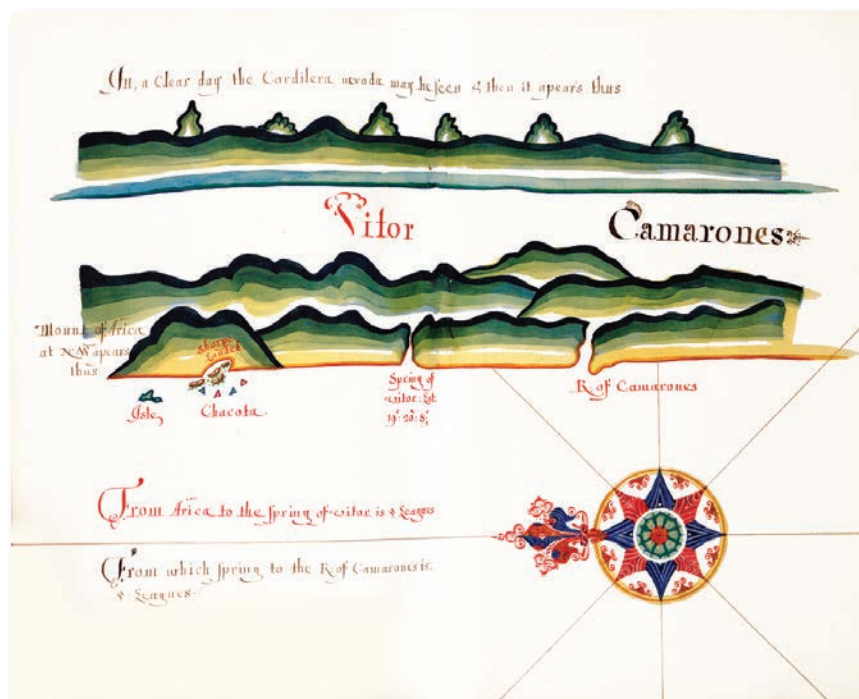 In, a Clear day the Cordilera nevada may be seen & then it apears thus
Vitor
Camarones
Mount of Arica
at NW apears
thus
Sharps
Landed
Isle,
Chacota.
Spring of
vitor: Lat
19º: 20: S:
R. of Camarones
From Arica to the spring of vitor is Leagues
From which spring to the R. of Camarones is
Leagues.